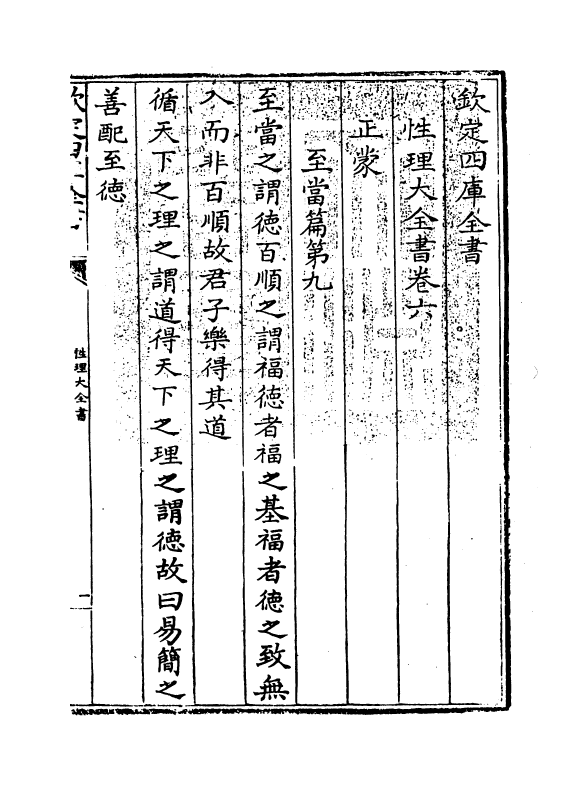 欽定四庫全書
性理大全書卷六
正蒙
至當篇第九
至當之謂徳百順之謂福徳者福之基福者徳之致無
入而非百順故君子樂得其道
循天下之理之謂道得天下之理之謂徳故曰易簡之
善配至徳
性理大全書